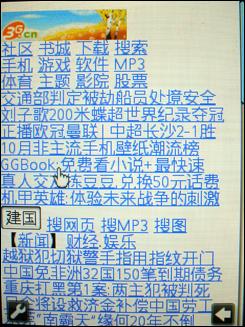 3G.cn
社区 书城 下载 搜索
手机 游戏 软件 MP3
体育 主题 影院 股票
交通部判定被劫船员处境安全
刘子歌200米蝶超世界纪录夺冠
正播欧冠曼联|中超长沙2-1胜
10月非主流手机壁纸潮流榜
GGBook:免费看小说+最快速
真人交友拣豆豆,兑换50元话费
机甲英雄:体验未来战争的刺激
建国 搜网页 搜MP3 搜图
【新闻】财经.娱乐
越狱犯切狱警手指用指纹开门
中国免非洲32国150笔到期债务
重庆打黑第1案:两主犯被判死
将设救济金补偿中国劳工
"南霸天"缘何20年不倒